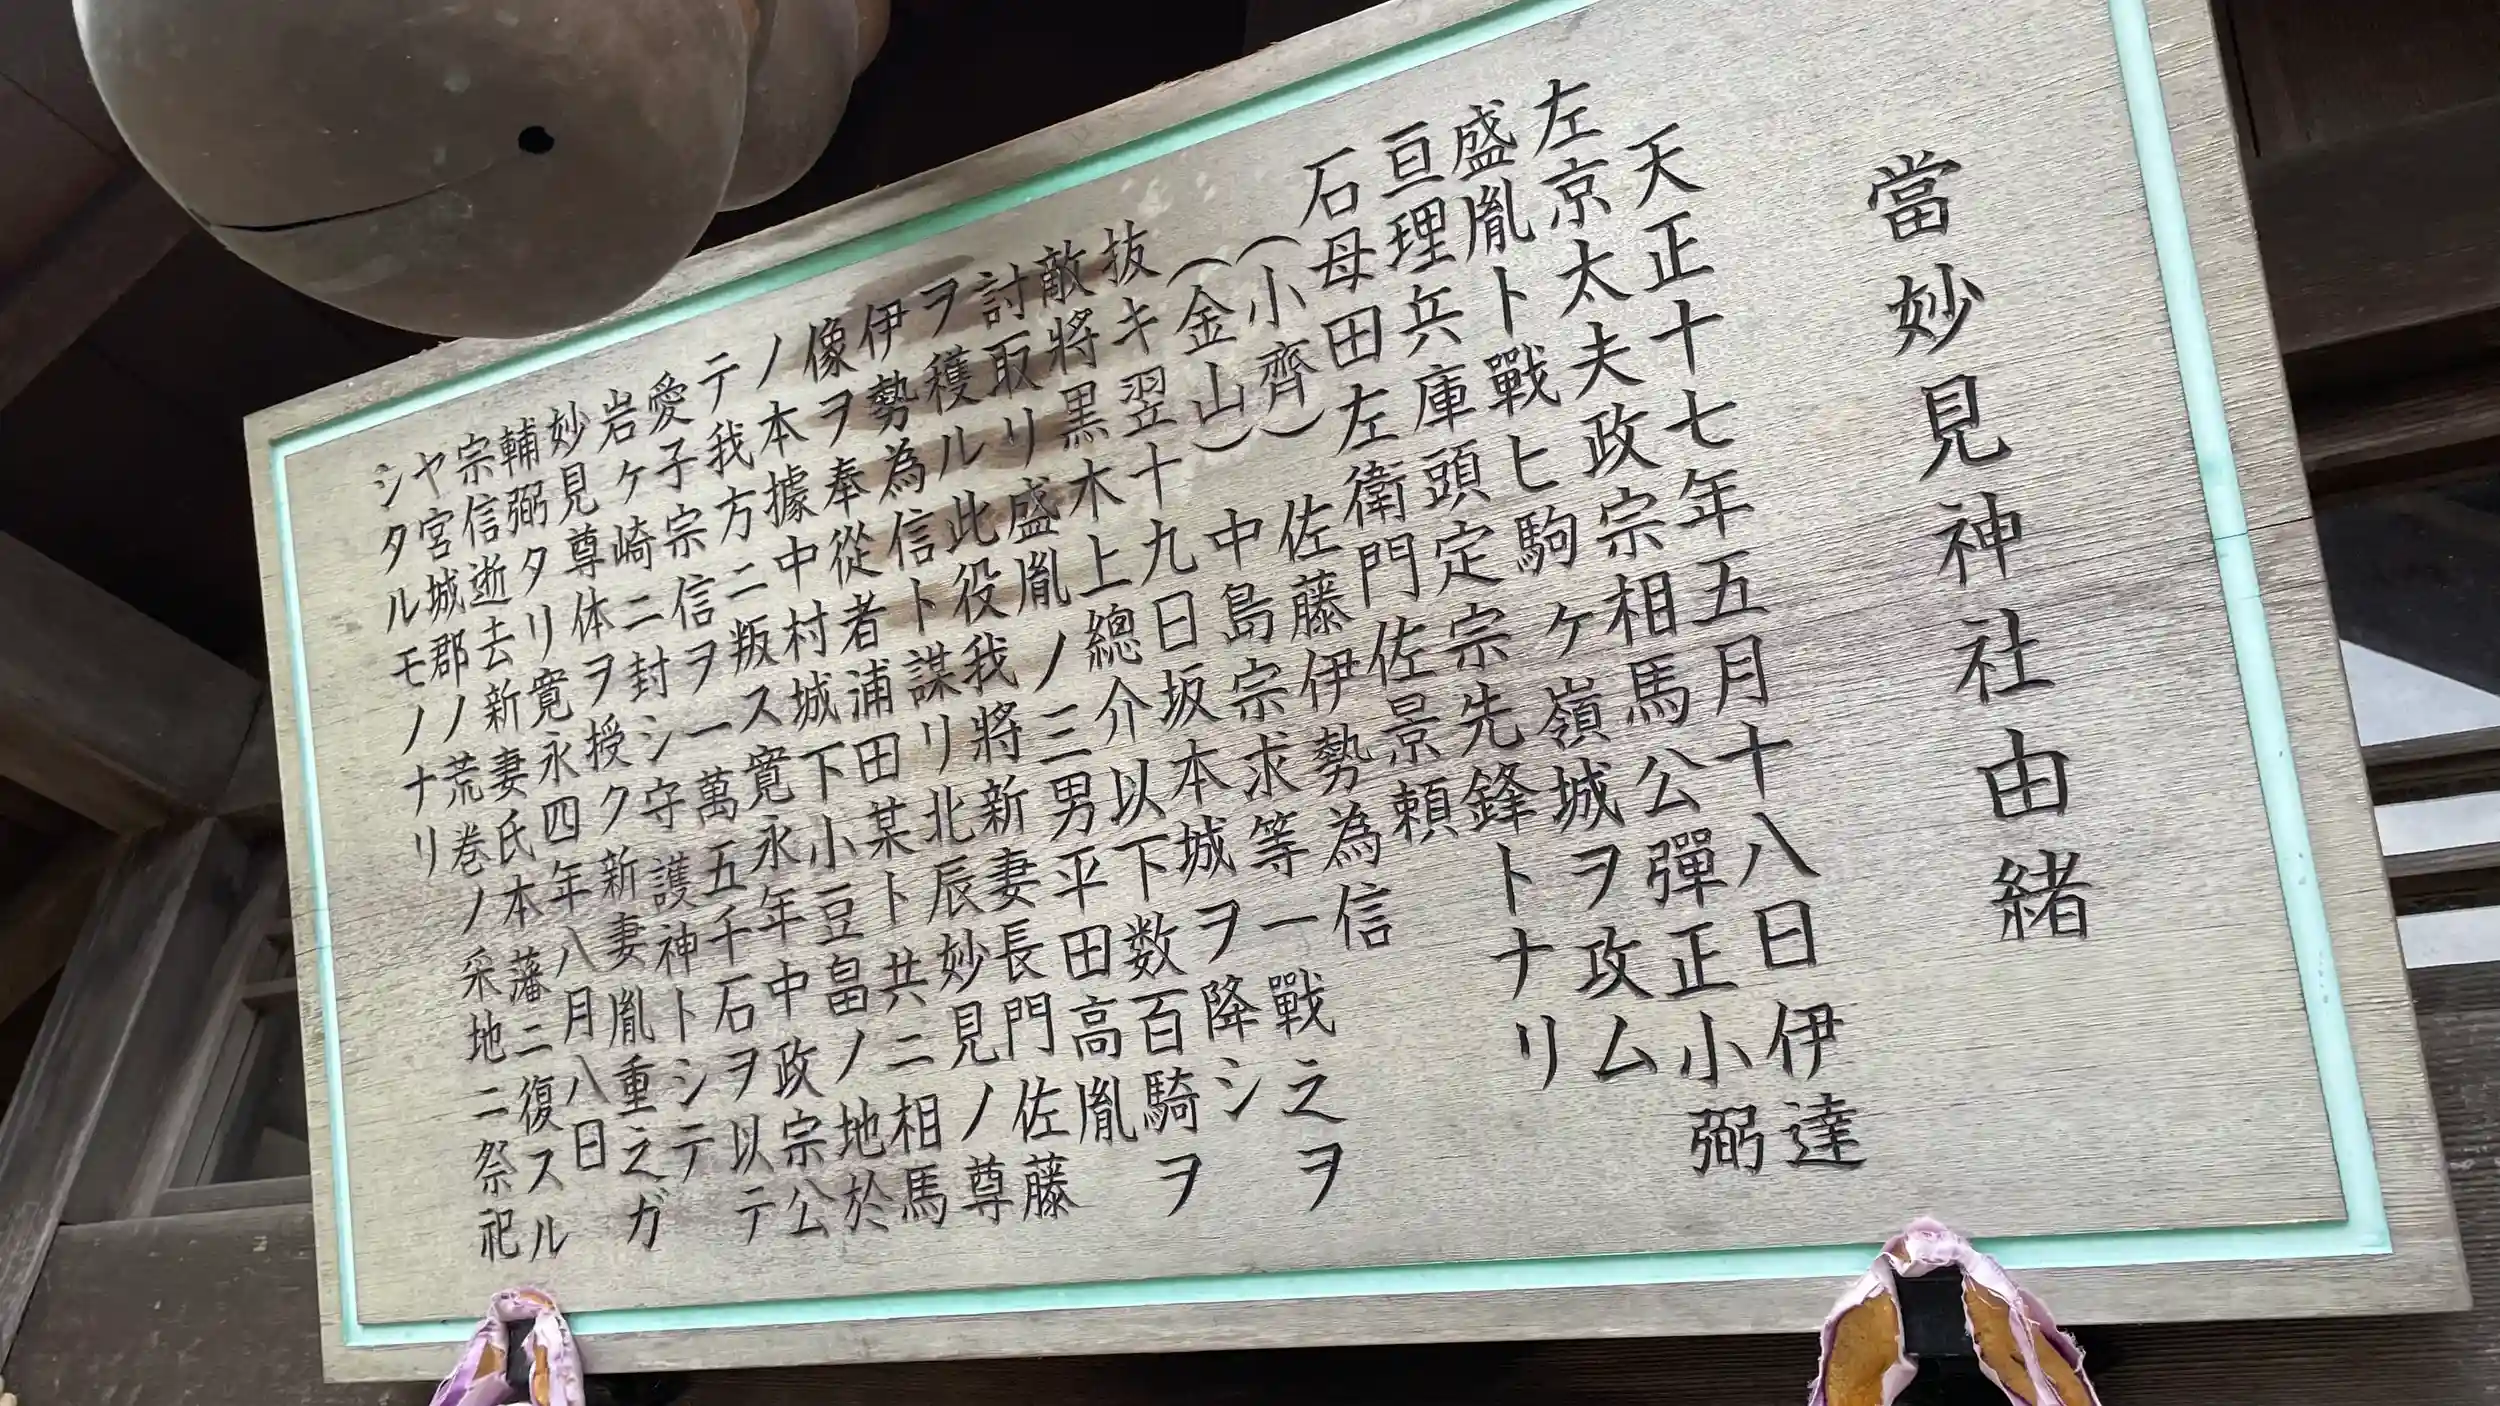 當妙見神社由緒
天正十七年五月十八日伊達
左京太夫政宗相馬公彈正小弼
盛胤ト戰ヒ駒ケ嶺城ヲ攻ム
亘理兵庫頭定宗先鋒トナリ
石母田左衛門佐景頼
(小齊)佐藤伊勢為信
(金山)中島宗求等一戰之ヲ
抜キ翌十九日坂本城ヲ降シ
敵將黒木上總介以下数百騎ヲ
討取リ盛胤ノ三男平田高胤
ヲ獲ル此役我將新妻長門佐藤
伊勢為信ト謀リ北辰妙見ノ尊
像ヲ奉從者浦田某ト共ニ相馬
ノ本據中村城下小豆畠ノ地於
テ我方ニ叛ス寛永年中政宗公
愛子宗信ヲ一萬五千石ヲ以テ
岩ケ崎ニ封シ守護神トシテ
妙見尊体ヲ授ク新妻胤重之ガ
輔弼タリ寛永四年八月八日
宗信逝去新妻氏本藩ニ復スル
ヤ宮城郡ノ荒巻ノ采地ニ祭祀
シタルモノナリ